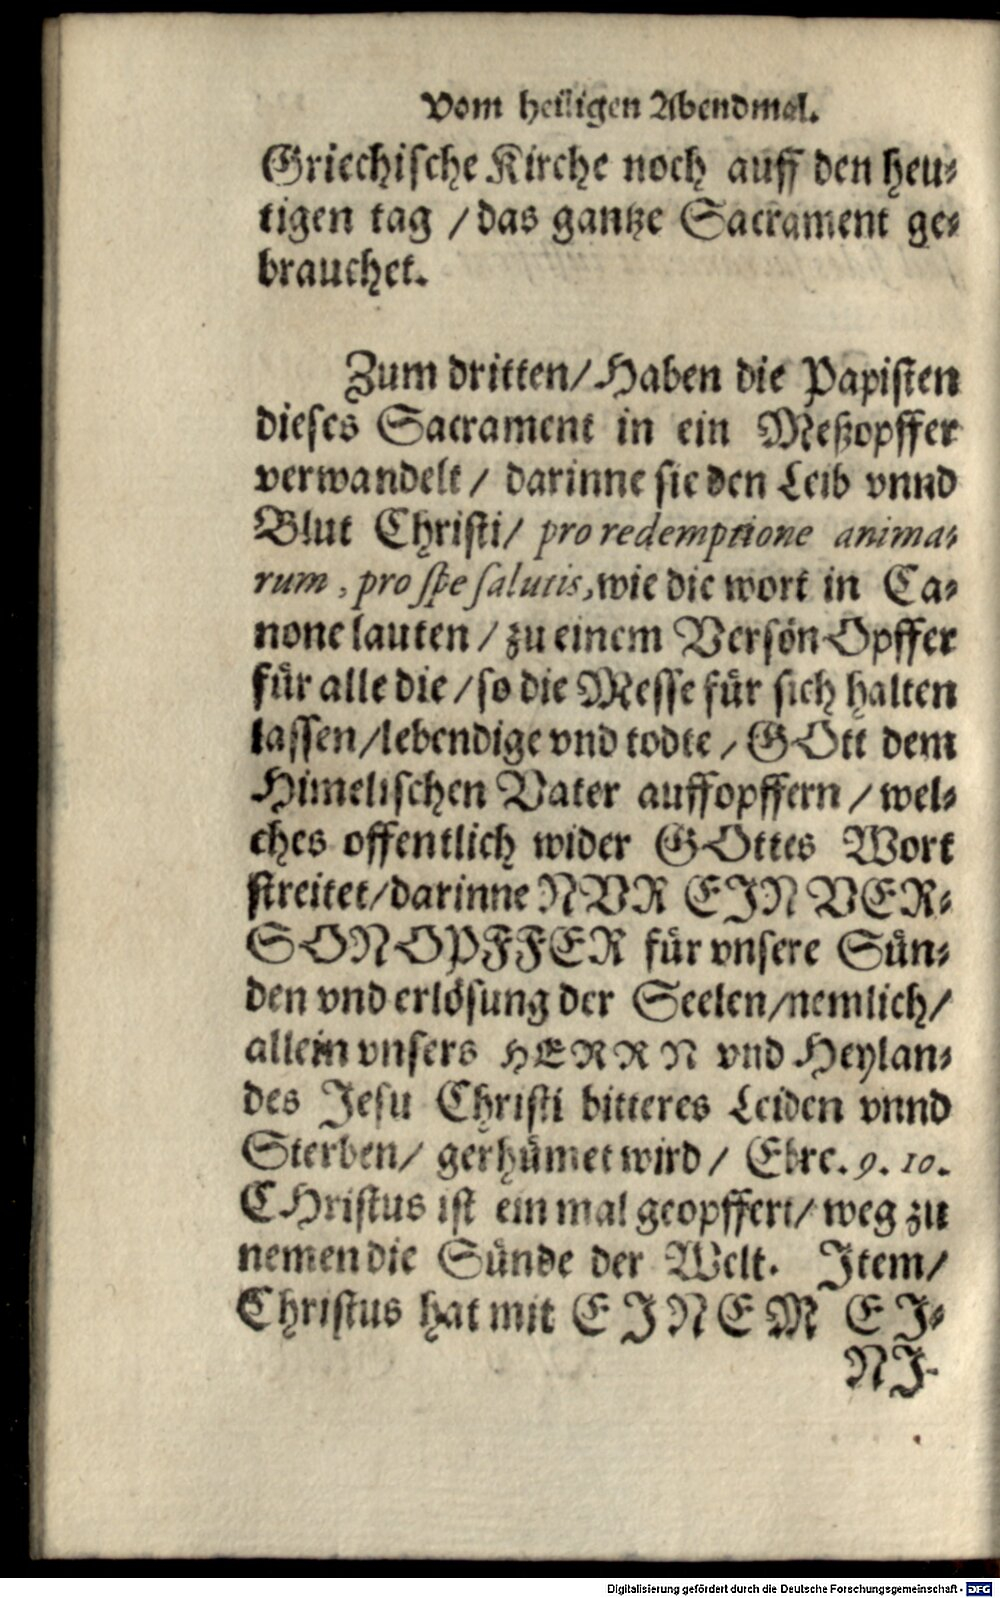 Vom heiligen Abendmal.
Griechische Kirche noch auff den heu-
tigen tag / das gantze Sacrament ge-
brauchet.
Zum dritten / Haben die Papisten
dieses Sacrament in ein Meßopffer
verwandelt / darinne sie den Leib vnnd
Blut Christi / pro redemptione anima-
rum, pro spe salutis, wie die wort in Ca-
none lauten / zu einem Versön Opffer
für alle die / so die Messe für sich halten
lassen / lebendige vnd todte / GOtt dem
Himelischen Vater auffopffern / wel-
ches offentlich wider GOttes Wort
streitet / darinne NVR EIN VER-
SONOPFFER für vnsere Sün-
den vnd erlösung der Seelen / nemlich /
allein vnsers HERRN vnd Heylan-
des Jesu Christi bitteres Leiden vnnd
Sterben / gerhümet wird / Ebre. 9. 10.
CHristus ist ein mal geopffert / weg zu
nemen die Sünde der Welt. Item /
Christus hat mit EINEM EI-
NI-
Digitalisierung gefördert durch die Deutsche Forschungsgemeinschaft - DFG